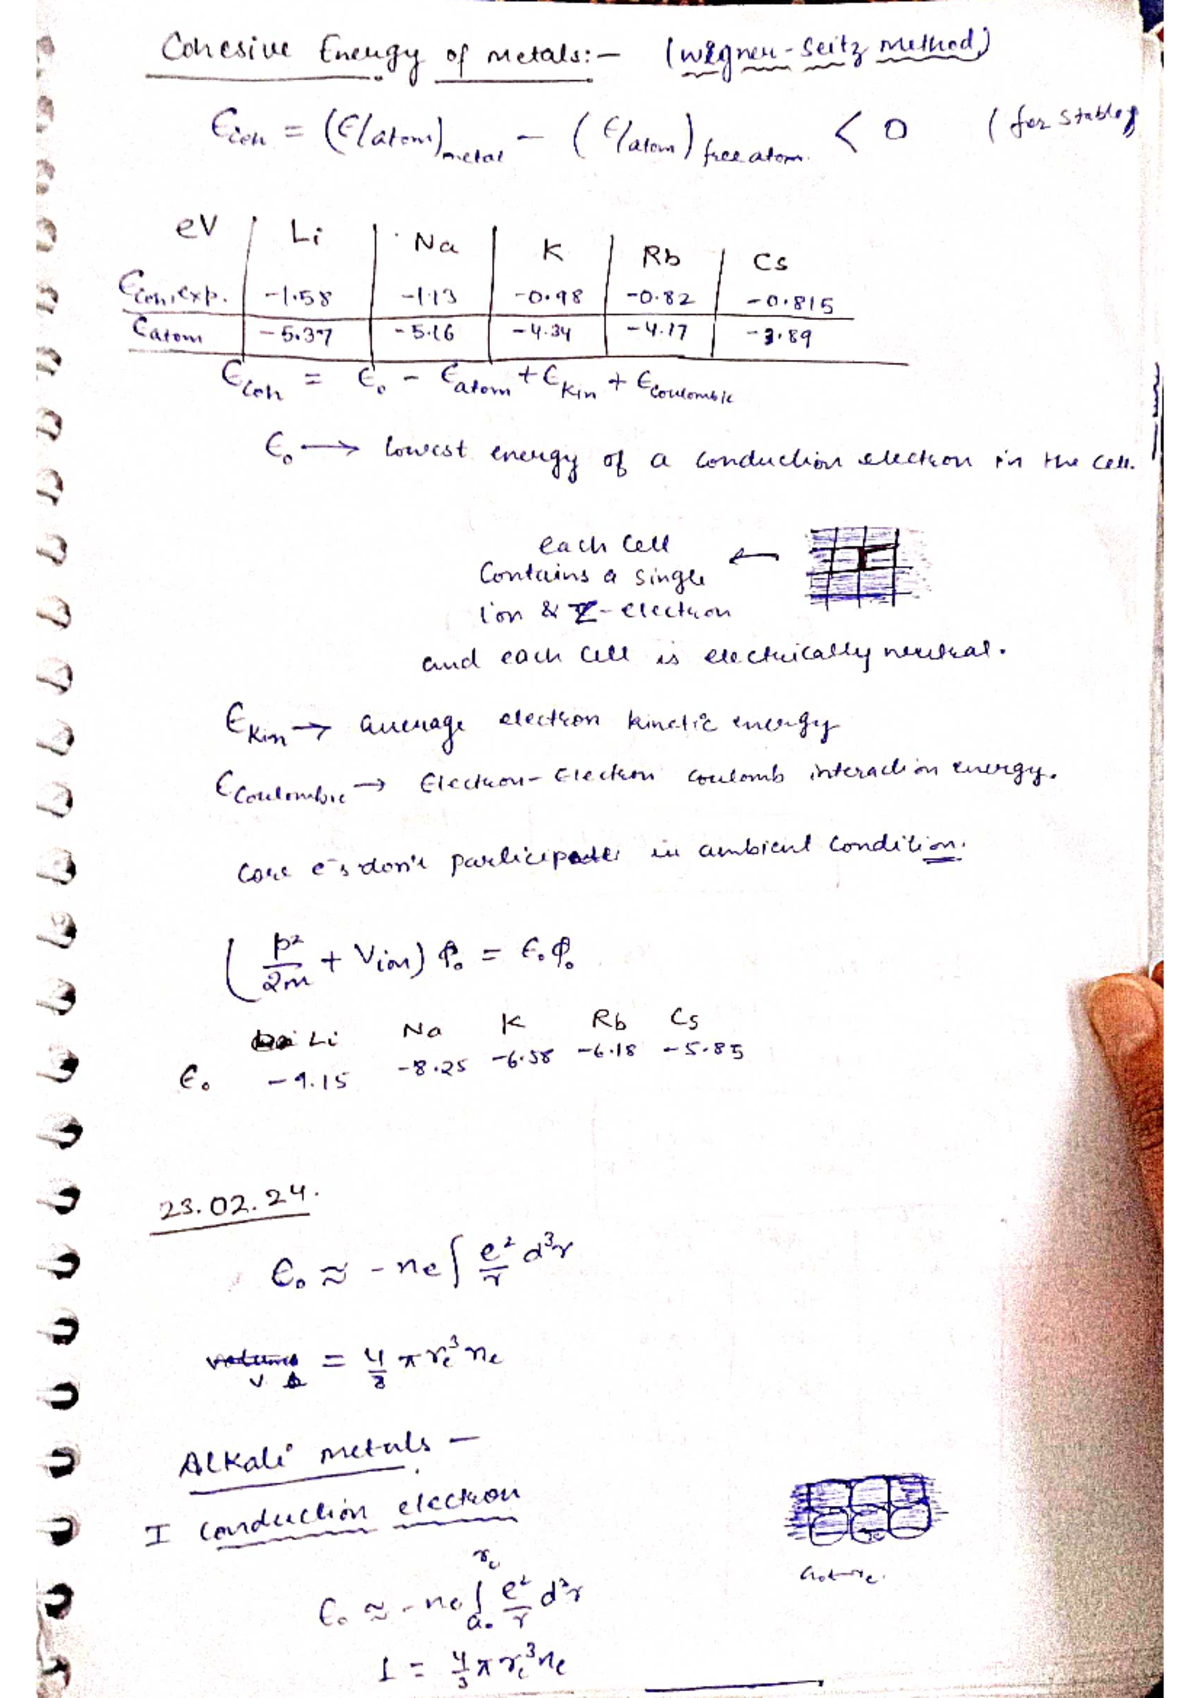 Cohesive Energy of metals:- (Wigner-Seitz Method)
ϵcoh = (E/atom)metal - (E/atom)free atom. < 0 (for stable)
eV Li Na K Rb Cs
ϵcoh,exp. -1.58 -1.13 -0.98 -0.82 -0.815
ϵatom -5.37 -5.16 -4.34 -4.17 -3.89
ϵcoh = ϵ₀ - ϵatom + ϵkin + ϵcoulombic
ϵ₀ → lowest energy of a conduction electron in the cell.
each cell ←
Contains a single
ion & Z-electron
and each cell is electrically neutral.
ϵkin → average electron kinetic energy
ϵcoulombic → Electron-Electron coulomb interaction energy.
Core e⁻s don't participate in ambient condition.
(p²/2m + Vion) φ₀ = ϵ₀φ₀
Li Na K Rb Cs
ϵ₀ -9.15 -8.25 -6.58 -6.18 -5.85
23.02.24.
ϵ₀ ≈ - ne ∫ e²/r d³r
V = 4/3 π rc³ ne
Alkali metals -
I conduction electron
ϵ₀ ≈ - ne ∫a₀^rc e²/r d³r
1 = 4/3 π rc³ ne